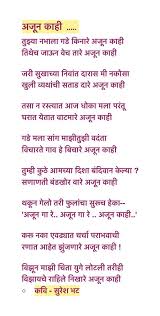 अजून काही .....
तुझ्या नभाला गडे किनारे अजून काही
तिथेच जाऊन येच तारे अजून काही
जरी सुखाच्या निवांत दारास मी नकोसा
खुली व्यथांची सताड दारे अजून काही
तसा न रस्त्यात आज धोका मला परंतू
घरात येतात वाटमारे अजून काही
गडे मला सांग माझीतुझी वदंता
विचारते गाव हे बिचारे अजून काही
तुम्ही कुठे आमच्या दिशा बंदिवान केल्या ?
सणाणती बंडखोर वारे अजून काही
थकून गेलो तरी फुलांचा सुरूच हेका--
'अजून गा रे.. अजून गा रे .. अजून काही..'
करू नका एवढ्यात चर्चा पराभवाची
रणात आहेत झुंजणारे अजून काही !
विझून माझी चिता युगे लोटली तरीही
विझायचे राहिले निखारे अजून काही
○ कवि - सुरेश भट